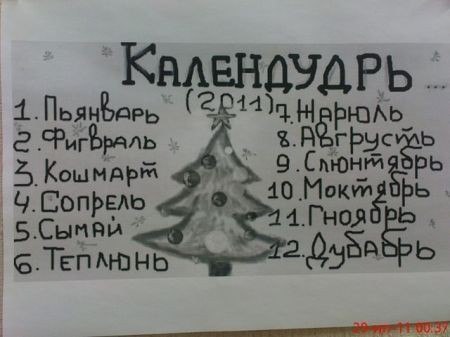 КАЛЕНДУДРЬ ...
(2011)
1. Пьянварь
2. Фигвраль
3. Кошмарт
4. Сопрель
5. Сымай
6. Теплюнь
7. Жарюль
8. Авгрусть
9. Слюнтябрь
10 Моктябрь
11. Гноябрь
12. Дубабрь